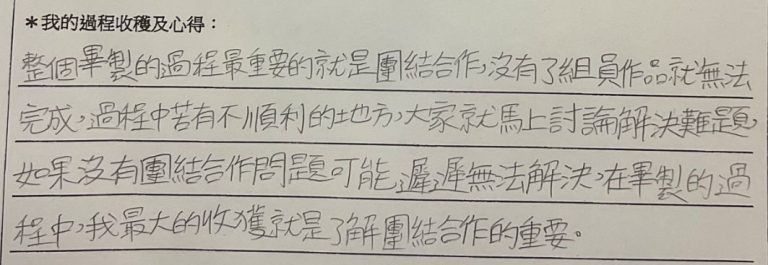 ＊我的過程收穫及心得：
整個畢製的過程最重要的就是團結合作，沒有了組員作品就無法
完成，過程中若有不順利的地方，大家就馬上討論解決難題，
如果沒有團結合作問題可能遲遲無法解決，在畢製的過
程中，我最大的收獲就是了解團結合作的重要。